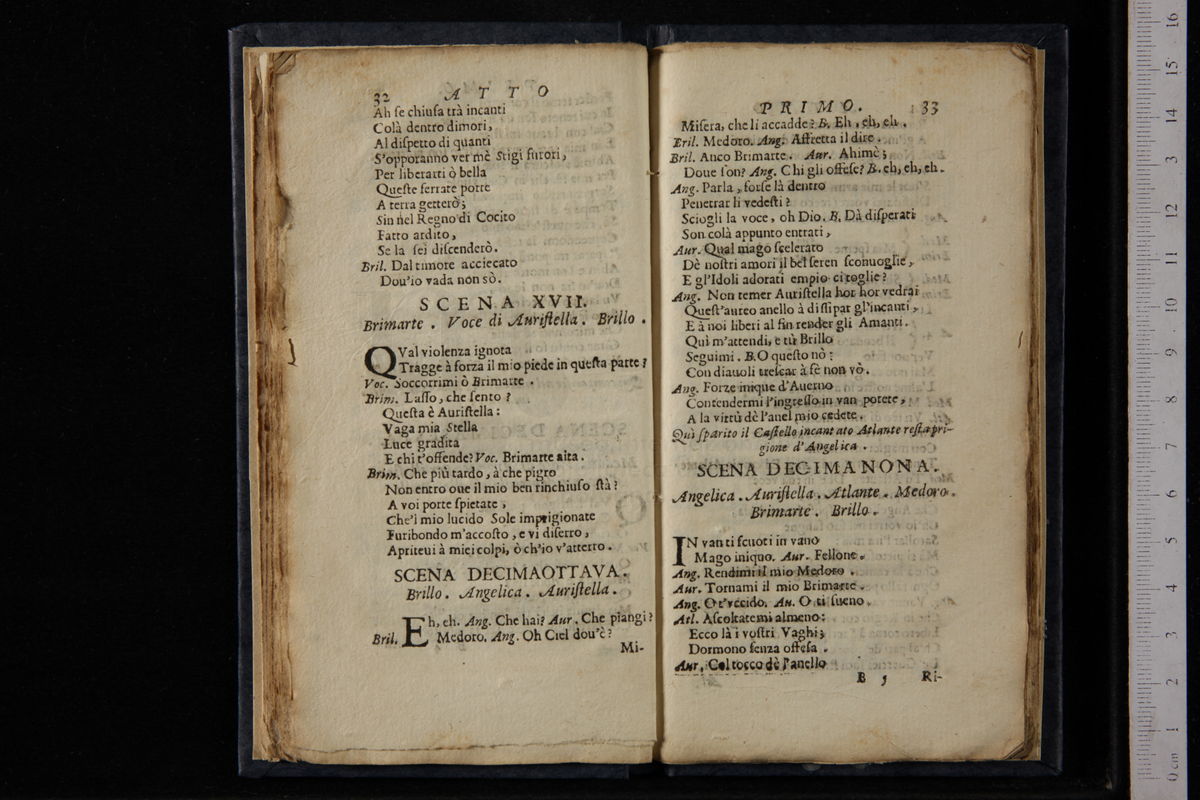 32 ATTO
Ah ſe chiuſa trà incanti
Colà dentro dimori,
Al diſpetto di quanti
S'opporanno ver mè Stigi furori,
Per liberarti ò bella
Queſte ferrate porte
A terra getterò;
Sin nel Regno di Cocito
Fatto ardito,
Se la ſei diſcenderò.
Bril. Dal timore acciecato
Dou'io vada non sò.
SCENA XVII.
Brimarte. Voce di Auriſtella. Brillo.
QVal violenza ignota
Tragge à forza il mio piede in queſta parte?
Voc. Soccorrimi ò Brimarte.
Brim. Laſſo, che ſento?
Queſta è Auriſtella:
Vaga mia Stella
Luce gradita
E chi t'offende? Voc. Brimarte aita.
Brim. Che più tardo, à che pigro
Non entro oue il mio ben rinchiuſo ſtà?
A voi porte ſpietate,
Che'l mio lucido Sole imprigionate
Furibondo m'accoſto, e vi diſerro,
Apriteui à miei colpi, ò ch'io v'atterro.
SCENA DECIMAOTTAVA.
Brillo. Angelica. Auriſtella.
Bril. Eh, eh. Ang. Che hai? Aur. Che piangi?
Medoro. Ang. Oh Ciel dou'è?
Mi-
PRIMO. 33
Miſera, che li accadde? B. Eh, eh, eh.
Bril. Medoro. Ang. Affretta il dire.
Bril. Anco Brimarte. Aur. Ahimè;
Doue ſon? Ang. Chi gli offeſe? B. eh, eh, eh.
Ang. Parla, forſe là dentro
Penetrar li vedeſti?
Sciogli la voce, oh Dio. B. Dà diſperati
Son colà appunto entrati,
Aur. Qual mago ſcelerato
Dè noſtri amori il bel ſeren ſconuoglie,
E gl'Idoli adorati empio ci toglie?
Ang. Non temer Auriſtella hor hor vedrai
Queſt'aureo anello à diſſipar gl'incanti,
E à noi liberi al fin render gli Amanti.
Quì m'attendi, e tù Brillo
Seguimi. B. O queſto nò:
Con diauoli treſcar à fè non vò.
Ang. Forze inique d'Auerno
Contendermi l'ingreſſo in van potete,
A la virtù dè l'anel mio cedete.
Quì ſparito il Caſtello incantato Atlante reſta pri-
gione d'Angelica.
SCENA DECIMANONA.
Angelica. Auriſtella. Atlante. Medoro.
Brimarte. Brillo.
IN van ti ſcuoti in vano
Mago iniquo. Aur. Fellone.
Ang. Rendimi il mio Medoro.
Aur. Tornami il mio Brimarte.
Ang. O t'vccido. Au. O ti ſueno.
Atl. Aſcoltatemi almeno:
Ecco là i voſtri Vaghi;
Dormono ſenza offeſa.
Aur. Col tocco dè l'anello
B 5 Ri-